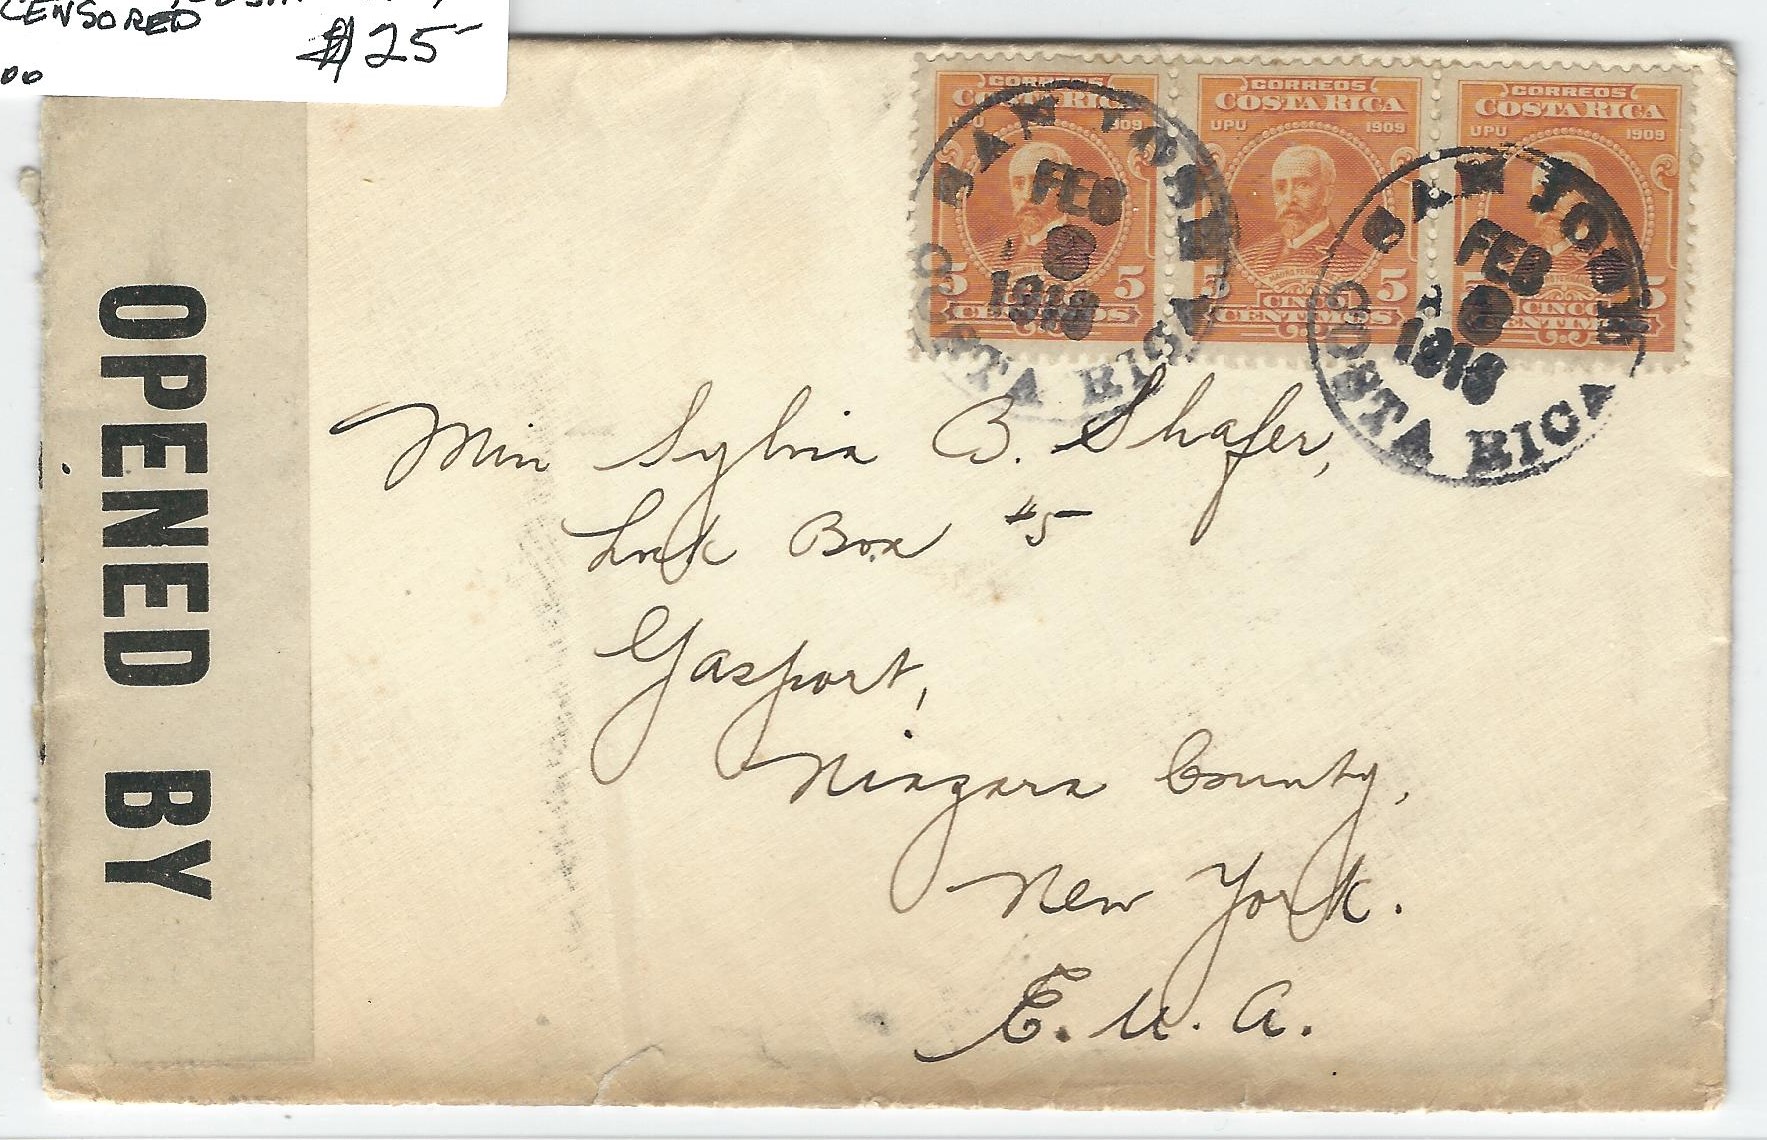 CENSORED
$25
00
OPENED BY
CORREOS
COSTA RICA
UPU 1909
5 5
CENTIMOS
CORREOS
COSTA RICA
UPU 1909
5 5
CINCO
CENTIMOS
CORREOS
COSTA RICA
UPU 1909
5 5
CINCO
CENTIMOS
SAN JOSE
FEB
8
1918
COSTA RICA
SAN JOSE
FEB
8
1918
COSTA RICA
Miss Sylvia B. Shafer,
Lock Box #5
Gasport,
Niagara County,
New York.
E. U. A.